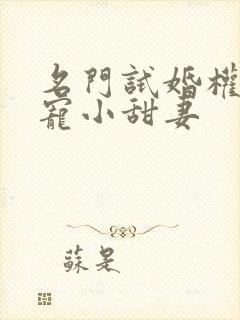 名門試婚權
寵小甜妻
蘇是